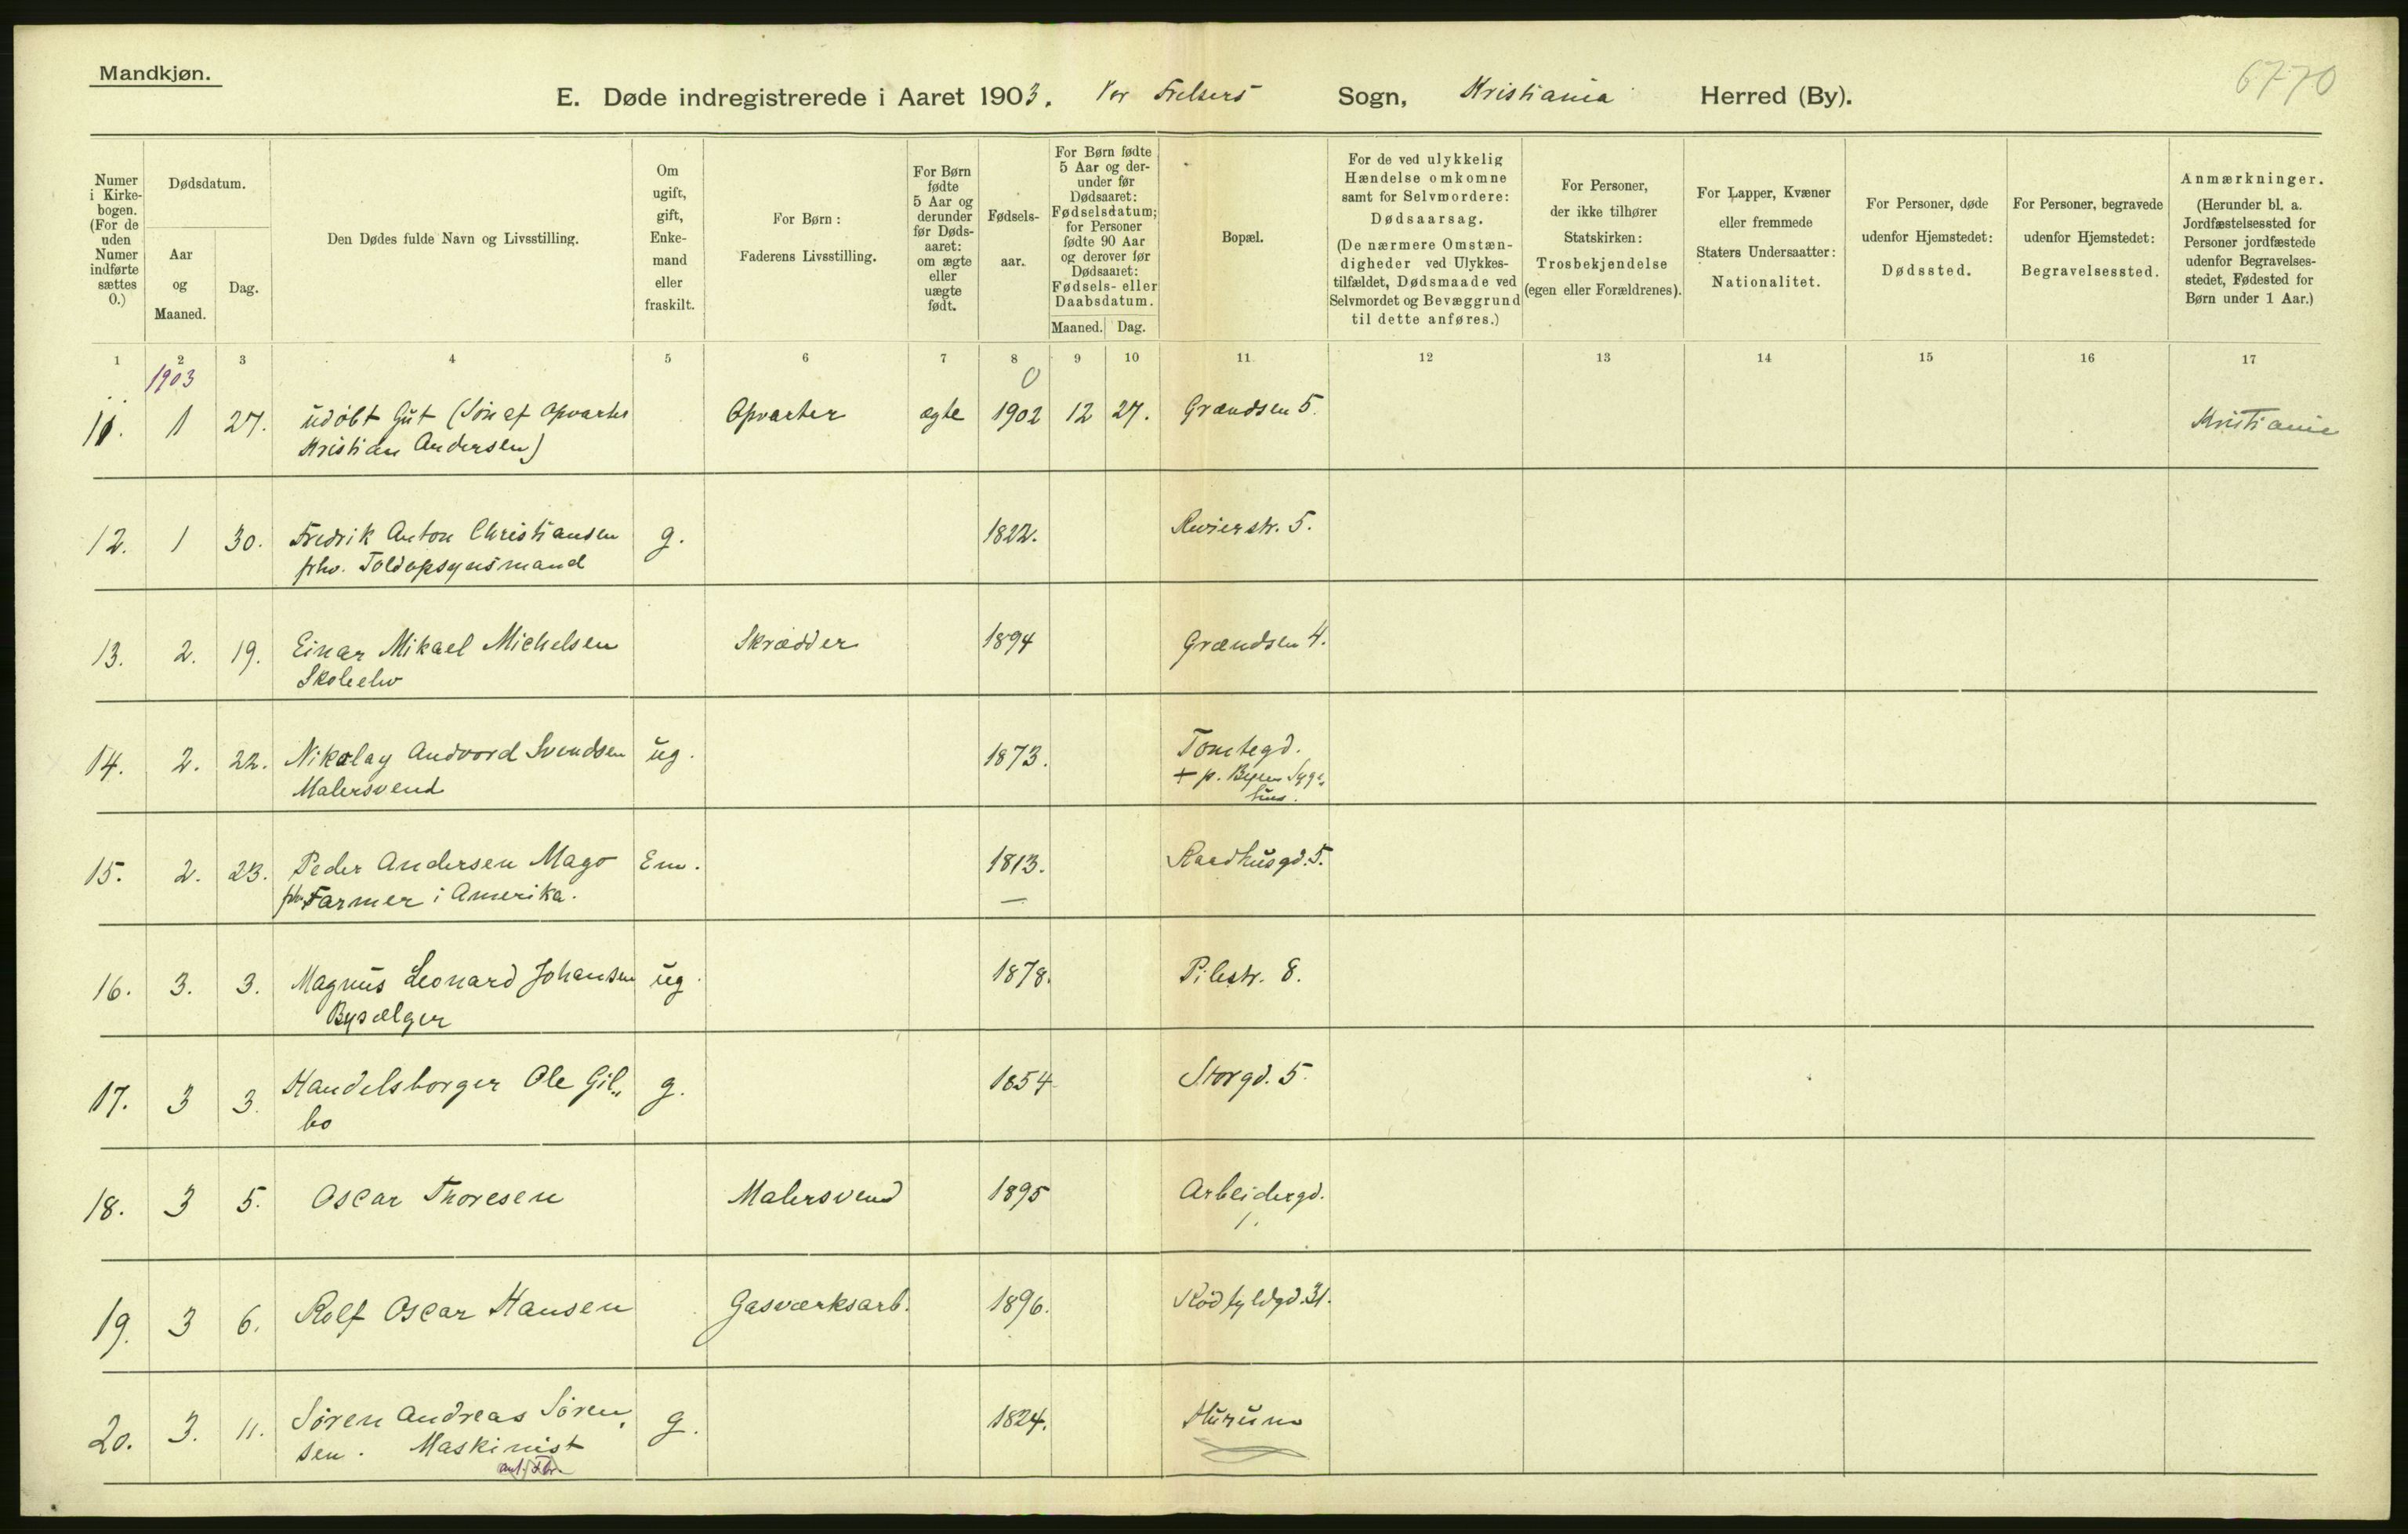 Mandkjøn.
6770
E. Døde indregistrerede i Aaret 1903. Vor Frelsers Sogn, Kristiania Herred (By).
Numer i Kirke-bogen. (For de uden Numer indførte sættes 0.)
Dødsdatum.
Aar og Maaned.
Dag.
Den Dødes fulde Navn og Livsstilling.
Om ugift, gift, Enke-mand eller fraskilt.
For Børn: Faderens Livsstilling.
For Børn fødte 5 Aar og derunder før Døds-aaret: om ægte eller uægte født.
Fødsels-aar.
For Børn fødte 5 Aar og der-under før Dødsaaret: Fødselsdatum; for Personer fødte 90 Aar og derover før Dødsaaret: Fødsels- eller Daabsdatum.
Maaned. Dag.
Bopæl.
For de ved ulykkelig Hændelse omkomne samt for Selvmordere: Dødsaarsag. (De nærmere Omstæn-digheder ved Ulykkes-tilfældet, Dødsmaade ved Selvmordet og Bevæggrund til dette anføres.)
For Personer, der ikke tilhører Statskirken: Trosbekjendelse (egen eller Forældrenes).
For Lapper, Kvæner eller fremmede Staters Undersaatter: Nationalitet.
For Personer, døde udenfor Hjemstedet: Dødssted.
For Personer, begravede udenfor Hjemstedet: Begravelsessted.
Anmærkninger. (Herunder bl. a. Jordfæstelsessted for Personer jordfæstede udenfor Begravelses-stedet, Fødested for Børn under 1 Aar.)
1 2 3 4 5 6 7 8 9 10 11 12 13 14 15 16 17
1903 0
11. 1 27. udøbt Gut (Søn af Opvarter Opvarter ægte 1902 12 27. Grændsen 5. Kristiania
Kristian Andersen)
12. 1 30. Fredrik Anton Christiansen g. 1822. Revierstr. 5.
fhv. Toldopsynsmand
13. 2. 19. Einar Mikael Michelsen Skrædder 1894 Grændsen 4.
Skoleelev
14. 2. 22. Nikolay Andvord Svendsen ug. 1873. Tomtegd.
Malersvend + p. Byens Syge„
hus.
15. 2. 23. Peder Andersen Mago Em. 1813. Raadhusgd. 5.
fhv. Farmer i Amerika. —
16. 3. 3. Magnus Leonard Johansen ug. 1878. Pilestr. 8.
Bysælger
17. 3 3. Handelsborger Ole Gil„ g. 1854 Storgd. 5.
bo
18. 3 5. Oscar Thoresen Malersvend 1895 Arbeidergd.
1.
19. 3 6. Rolf Oscar Hansen Gasværksarb. 1896. Rødfyldgd. 31.
20. 3. 11. Søren Andreas Søren„ g. 1824. Hurum
sen. Maskinist